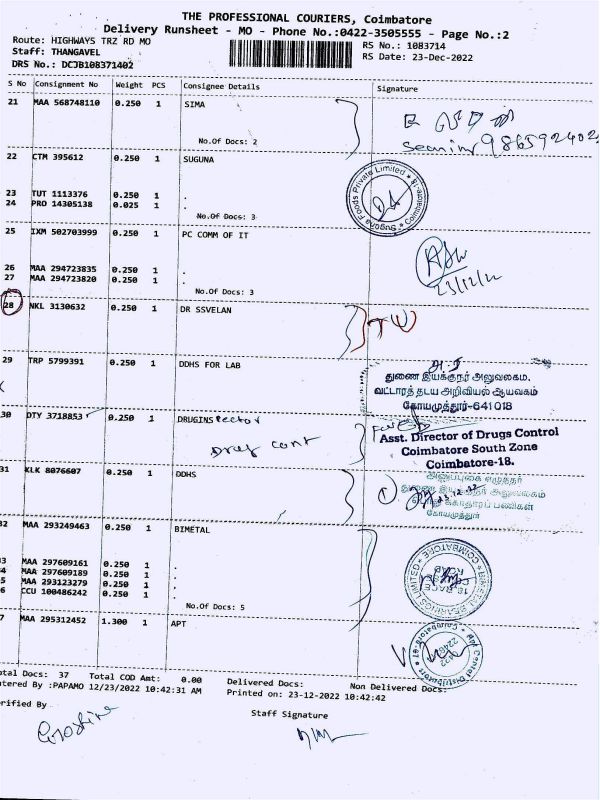 THE PROFESSIONAL COURIERS, Coimbatore
Delivery Runsheet - MO - Phone No.:0422-3505555 - Page No.:2
Route: HIGHWAYS TRZ RD MO
Staff: THANGAVEL
DRS No.: DCJB108371402
RS No.: 1083714
RS Date: 23-Dec-2022
S No Consignment No Weight PCS Consignee Details Signature
21 MAA 568748110 0.250 1 SIMA
No.Of Docs: 2
22 CTM 395612 0.250 1 SUGUNA
23 TUT 1113376 0.250 1 .
24 PRO 14305138 0.025 1 .
No.Of Docs: 3
Suguna Foods Private Limited * Coimbatore-18
25 IXM 502703999 0.250 1 PC COMM OF IT
26 MAA 294723835 0.250 1 .
27 MAA 294723820 0.250 1 .
No.Of Docs: 3
23/12/22
28 NKL 3130632 0.250 1 DR SSVELAN
29 TRP 5799391 0.250 1 DDHS FOR LAB
துணை இயக்குநர் அலுவலகம்.
வட்டாரத் தடய அறிவியல் ஆய்வகம்
கோயமுத்தூர்-641018
30 DTY 3718853 0.250 1 DRUGINSpector
Drug cont
Asst. Director of Drugs Control
Coimbatore South Zone
Coimbatore-18.
31 KLK 8076607 0.250 1 DDHS
கோயமுத்தூர்
32 MAA 293249463 0.250 1 BIMETAL
MAA 297609161 0.250 1 .
MAA 297609189 0.250 1 .
MAA 293123279 0.250 1 .
CCU 100486242 0.250 1 .
No.Of Docs: 5
BIMETAL BEARINGS LIMITED * COIMBATORE
MAA 295312452 1.300 1 APT
Total Docs: 37 Total COD Amt: 0.00 Delivered Docs: Non Delivered Docs:
Entered By :PAPAMO 12/23/2022 10:42:31 AM Printed on: 23-12-2022 10:42:42
Verified By
Staff Signature